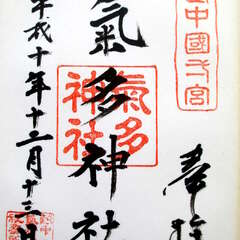 中國弌宮
奉拝
氣多神社
氣多
神社
平成十年十二月十三日